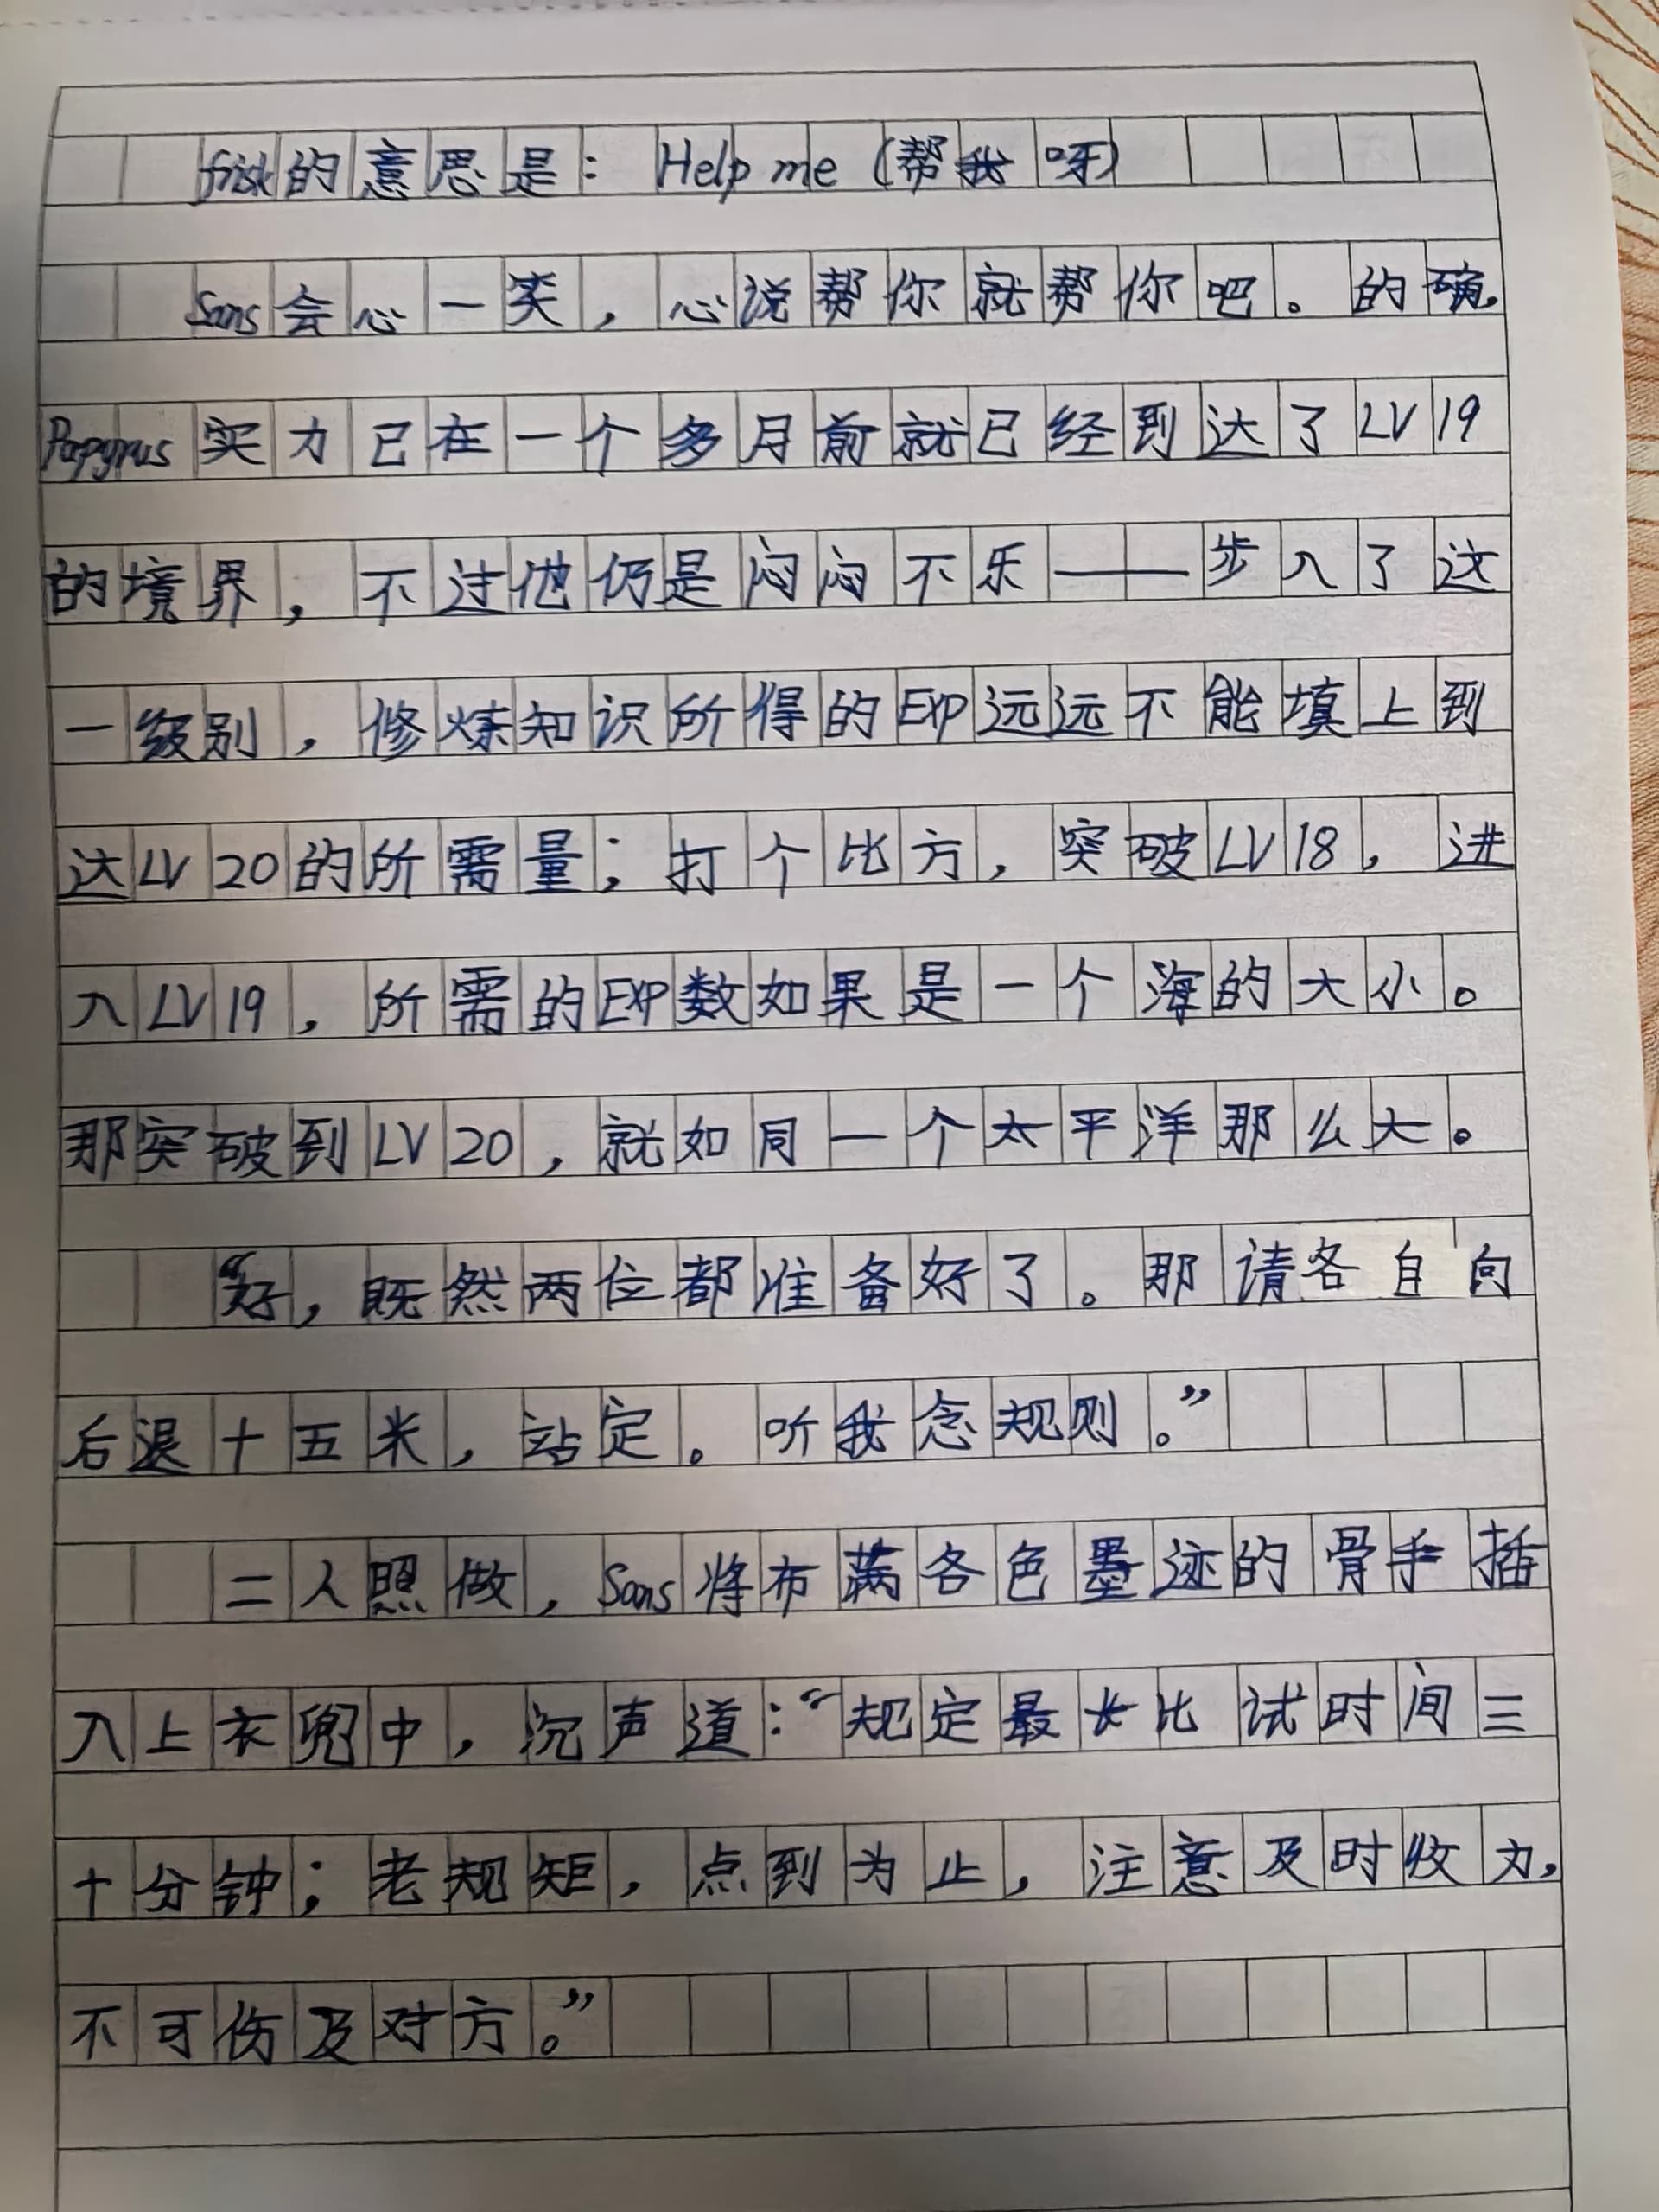 frisk的意思是：Help me（帮我呀）
Sans会心一笑，心说帮你就帮你吧。的确，
Papyrus实力已在一个多月前就已经到达了LV19
的境界，不过他仍是闷闷不乐——步入了这
一级别，修炼知识所得的EXP远远不能填上到
达LV20的所需量；打个比方，突破LV18，进
入LV19，所需的EXP数如果是一个海的大小。
那突破到LV20，就如同一个太平洋那么大。
“好，既然两位都准备好了。那请各自向
后退十五米，站定。听我念规则。”
二人照做，Sans将布满各色墨迹的骨手插
入上衣兜中，沉声道：“规定最长比试时间三
十分钟；老规矩，点到为止，注意及时收力，
不可伤及对方。”